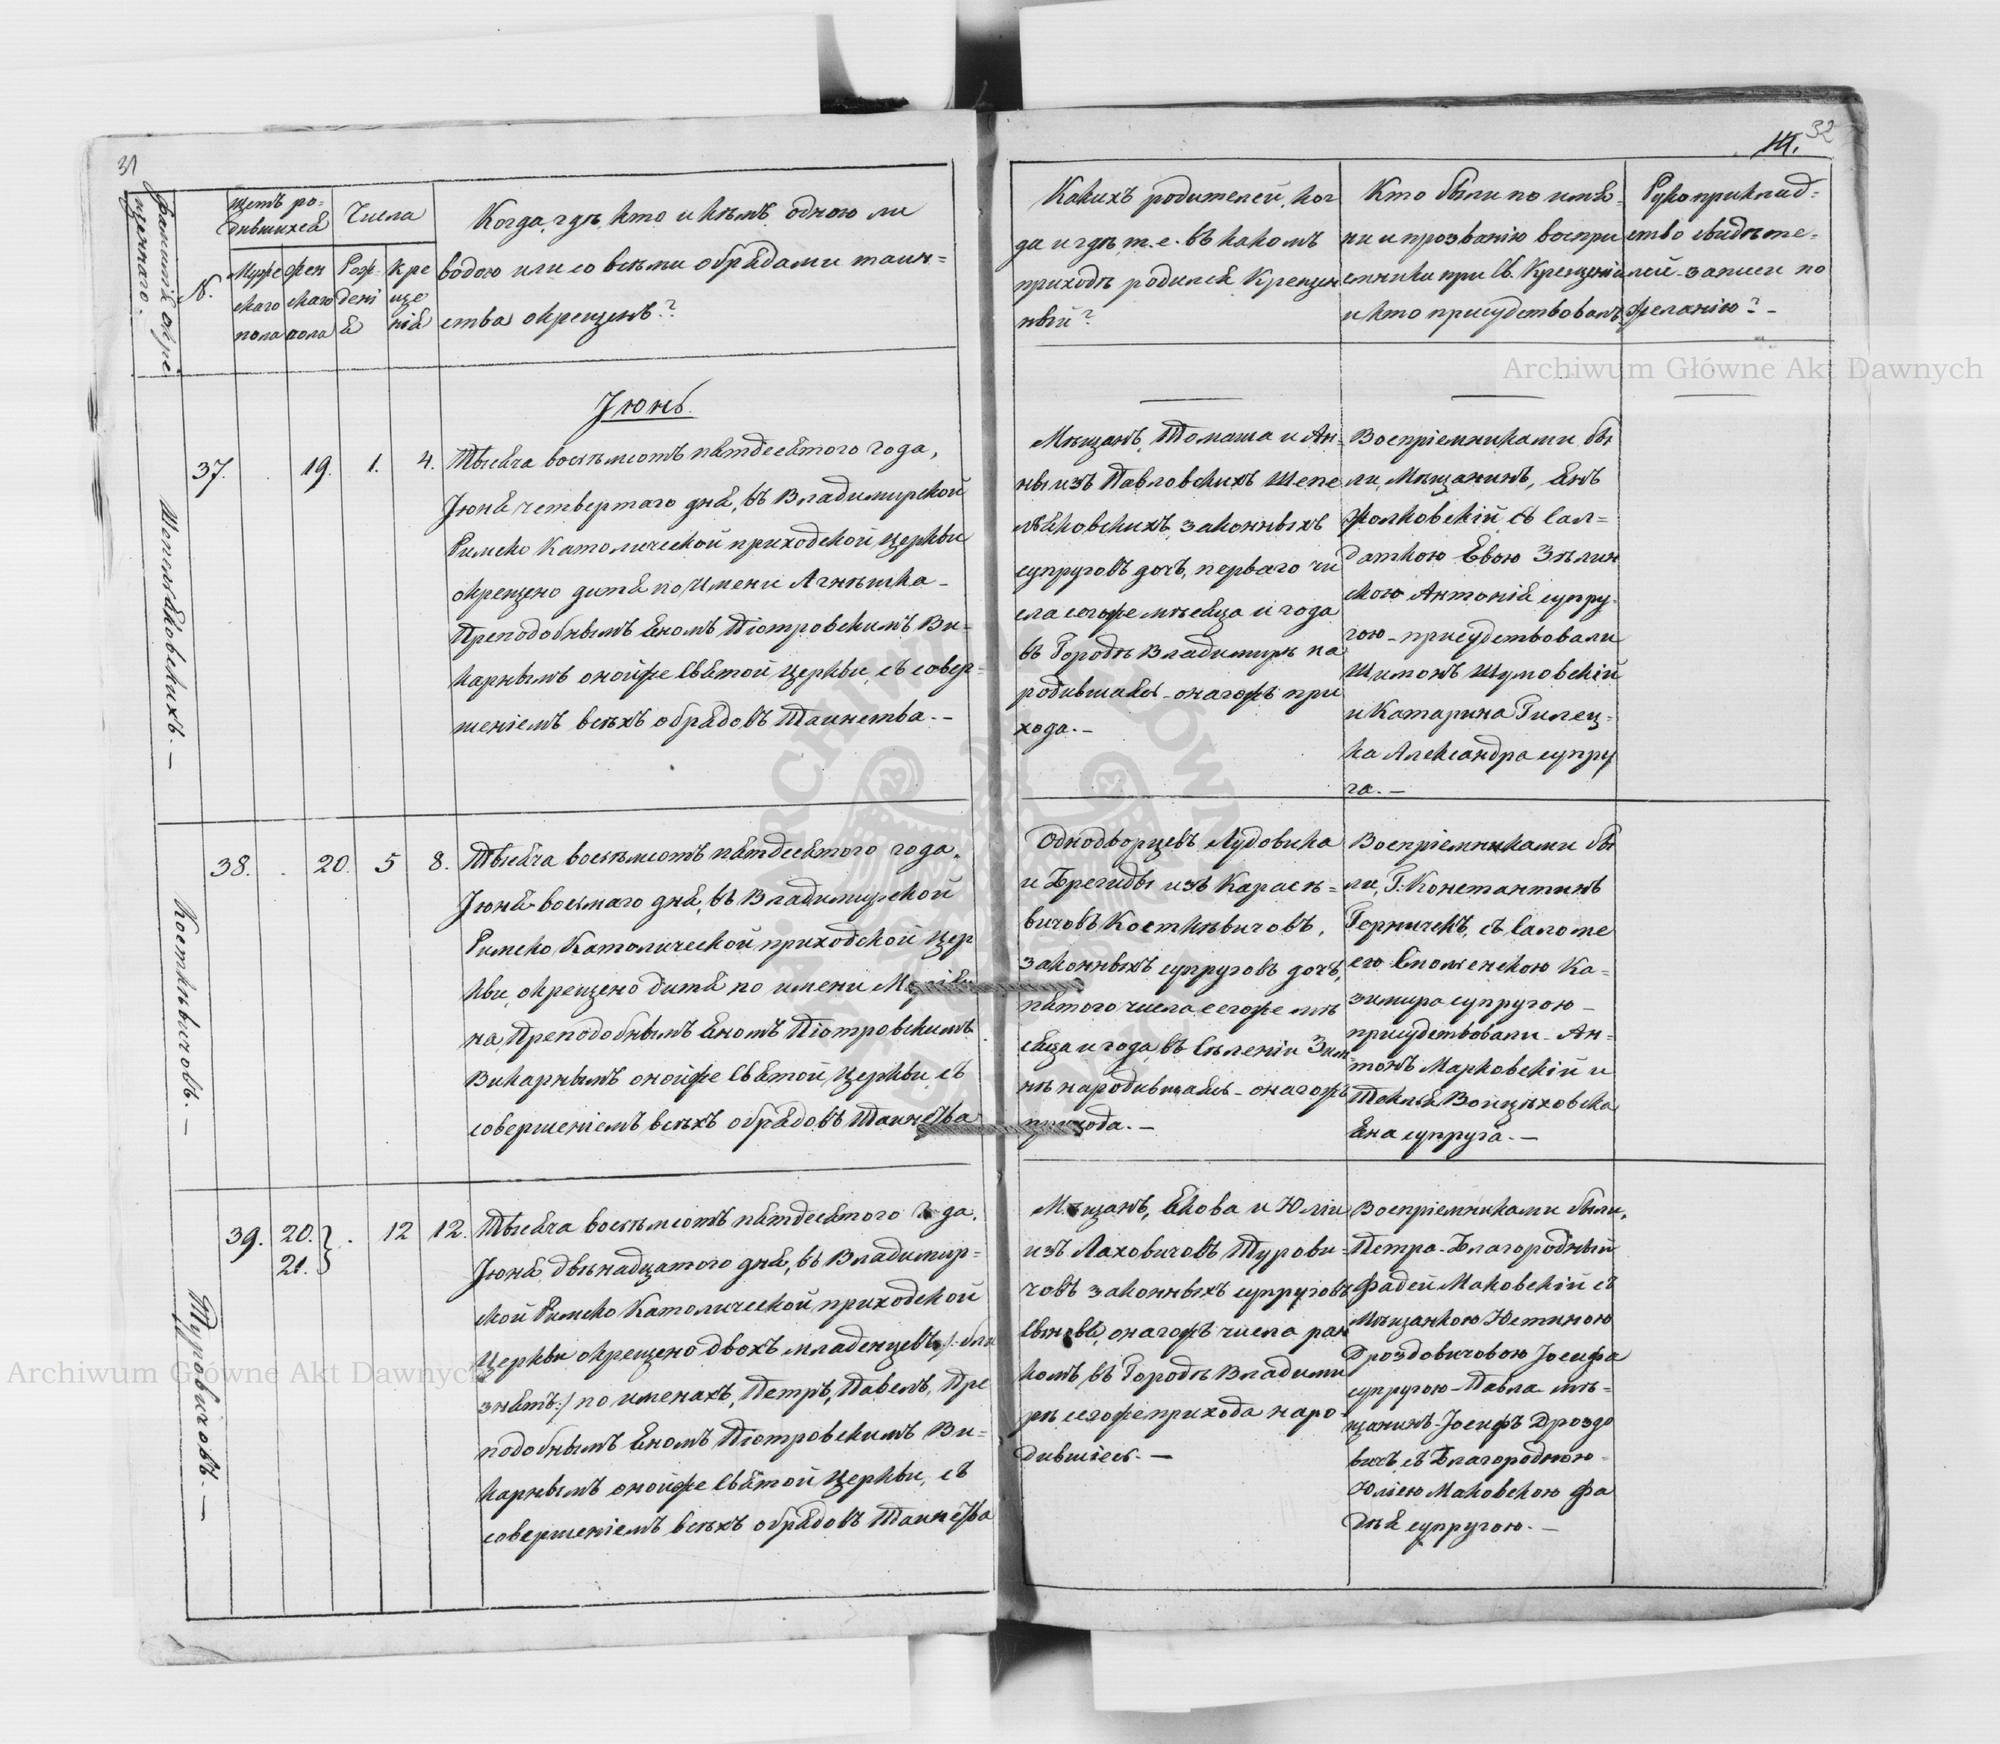 31
фамилія окре
щеннаго.
N.
Щетъ ро-
дившихся
Муже
скаго
пола
Жен
скаго
пола
Числа
Рож-
дені
я
Кре
ще
нія
Когда, гдѣ, кто и кѣмъ, одною ли
водою или со всѣми обрядами таин=
ства окрещенъ?
Іюнь.
37.
19.
1.
4.
Тысяча восемьсотъ пятдесятого года,
Іюня четвертаго дня, въ Владимирской
Римско Католической приходской Церкви
окрещено дитя по Имени Агнѣшка-
Преподобнымъ Яномъ Піотровскимъ Ви-
карнымъ онойже Святой Церкви, съ совер-
шеніемъ всѣхъ обрядовъ Таинства.-
38.
20.
5
8.
Косткѣвичовъ. –
Тысяча восемьсотъ пятдесятого года.
Іюня восьмаго дня, въ Владимирской
Римско Католической приходской Цер
кви, окрещено дитя по имени
на, Преподобнымъ Яномъ Піотровскимъ
Викарнымъ онойже Святой Церкви, съ
совершеніемъ всѣхъ обрядовъ Таинства
39.
20.
21.
12
12.
Туровичовъ. –
Тысяча восемьсотъ пятдесятого Года,
Іюня двѣнадцатого дня, въ Владимир=
ской Римско Католической приходской
Церкви окрещено двохъ младенцевъ /: бли
знятъ :/ по именахъ, Петръ, Павелъ, Пре
подобнымъ Яномъ Піотровскимъ Ви-
карнымъ онойже Святой Церкви, съ
совершеніемъ всѣхъ обрядовъ Таинства
32
14.
Какихъ родителей, ког
да и гдѣ т. е. въ какомъ
приходѣ родился Крещен
ный?
Кто были по имѣ-
ни и прозванію воспри
емники при Св. Крещеніи
и кто присудствовалъ.
Рукоприклад-
ство свидѣте-
лей записи по
желанію? -
Мѣщанъ, Томаша и Ан-
ны изъ Павловскихъ Шепе
лѣяковскихъ, законныхъ
супруговъ дочь, перваго чи
сла сегоже мѣсяца и года
въ Городѣ Владимирѣ на
родившаясь - онагожъ при
хода. –
Воспріемниками бы
ли, Мѣщанинъ, Янъ
Жолковскій съ Сал-
даткою Евою Зѣлин
скою Антонія супру-
гою - присудствовали
Шимонъ Шумовскій
и Катарина Гилец-
ка Александра супру
га. –
Однодворцевъ Лудовика
и Брегиды изъ Карасѣ=
вичовъ Косткѣвичовъ,
законныхъ супруговъ дочь,
пятого числа сегоже мѣ
сяца и года, въ Селеніи Зим
нѣ народившаясь - онагожъ
прихода. –
Воспріемниками бы
ли, Г. Константинъ
Горничекъ, съ Саломе
ею Смоленскою Ка-
зимира супругою -
присудствовали - Ан-
тонъ Марковскій и
Текля Войцѣховска
Яна супруга. –
Мѣщанъ, Якова и Юлии
изъ Лаховичовъ Турови-
човъ законныхъ супруговъ
сыновя, онагожъ числа ран
комъ, въ Городѣ Владими
рѣ сегожеприхода наро-
дившіесь. –
Воспріемниками были,
Петра - Благородный
Фадей Маковскій съ
Мѣщанкою Юстиною
Дроздовичовою Іосифа
супругою - Павла мѣ-
щанинъ Іосифъ Дроздо
вичъ, съ Благородною
Юліею Маковскою Фа
дѣя супругою. –
Archiwum Główne Akt Dawnych
Archiwum Główne Akt Dawnych